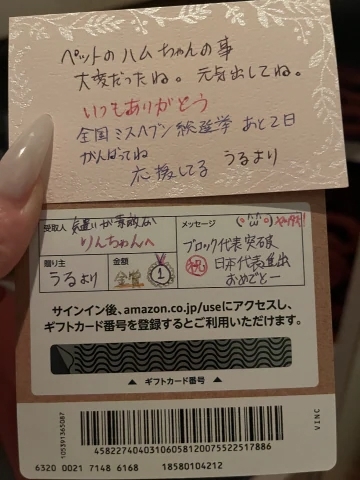 ペットのハムちゃんの事
大変だったね。元気出してね。
いつもありがとう
全国ミスヘブン総選挙 あと2日
がんばってね
応援してる うるより
受取人
気遣いが素敵な
りんちゃんへ
メッセージ
ブロック代表突破
祝 日本代表進出
おめでとー
贈り主
うるより
金額
金賞 1
サインイン後、amazon.co.jp/useにアクセスし、
ギフトカード番号を登録するとご利用いただけます。
▲ ギフトカード番号 ▲
VINC
105391365087
4582274040310605812007552251788​6
6320 0021 7148 6168 18580104212